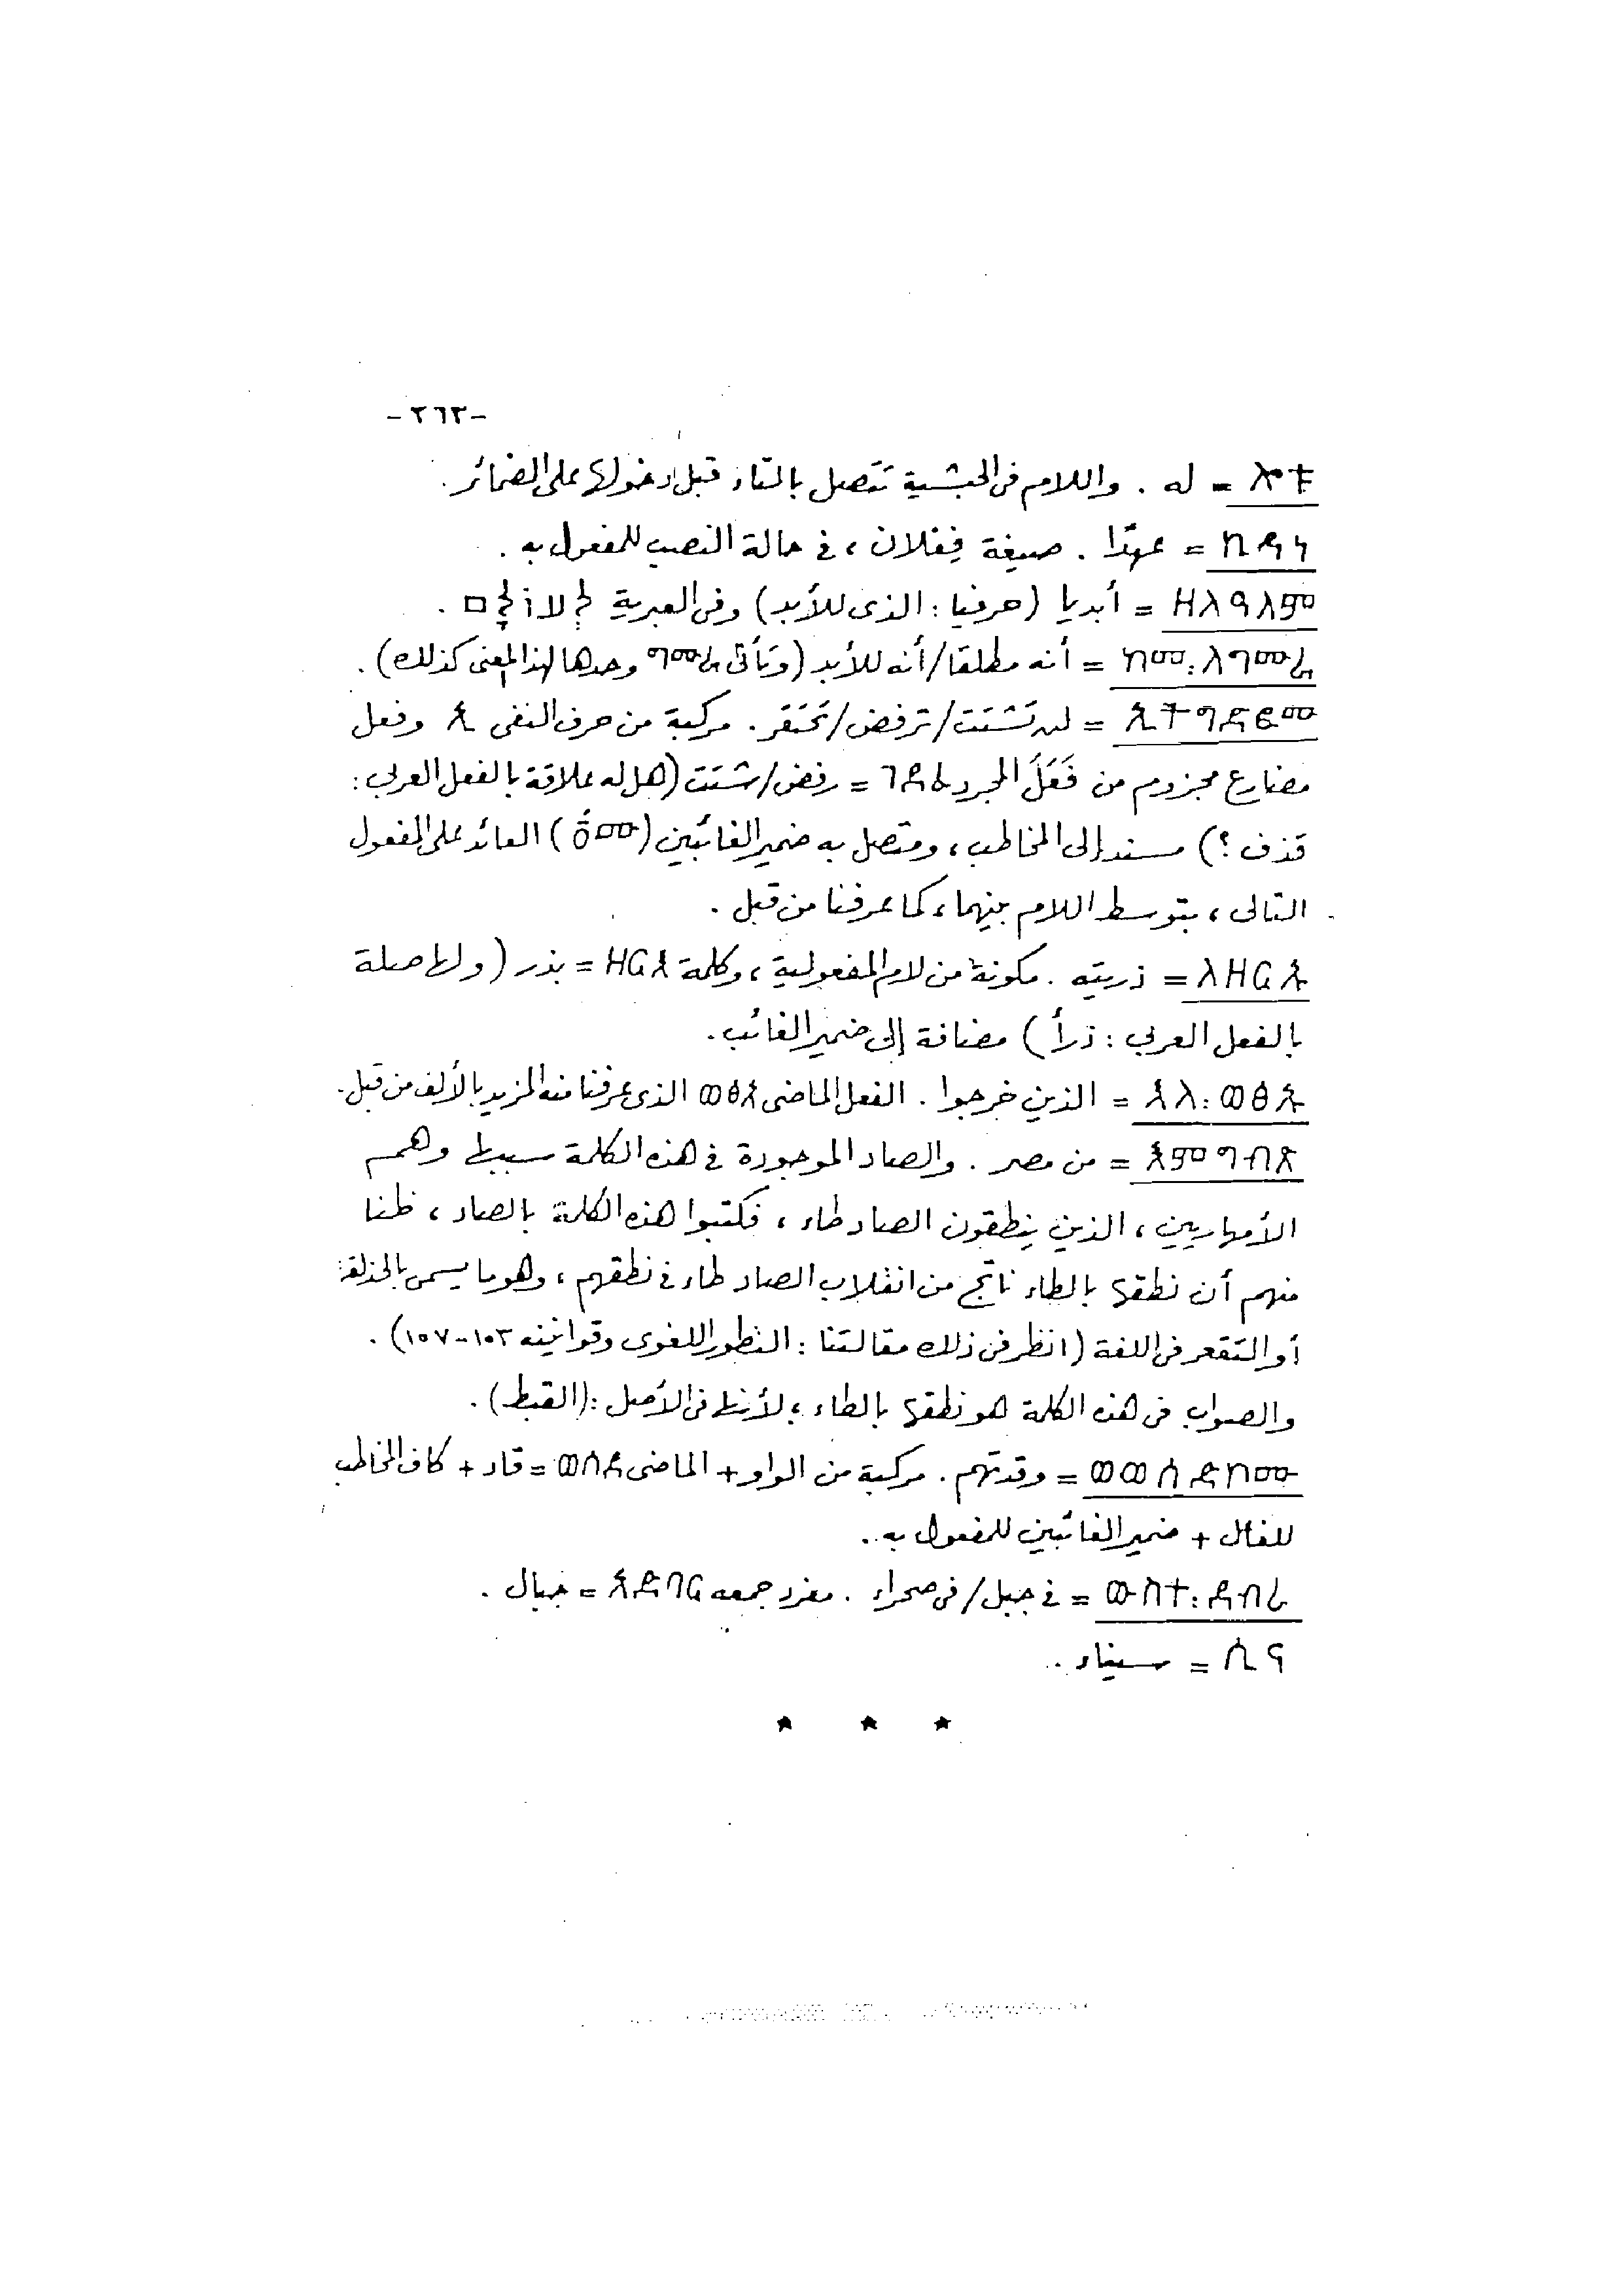 -٢٦٣-
ሎቱ = له . واللام فى الحبشية تتصل بالتاء قبل دخولها على الضمائر .
ኪዳነ = عهدًا . صيغة فِعْلان ، فى حالة النصب للمفعول به .
ዘለዓለም = أبديا (حرفيا : الذى للأبد) وفى العبرية לְעוֹלָם .
ከመ፡ለግሙራ = أنه مطلقا/أنه للأبد (وتأتى ግሙራ وحدها لهذا المعنى كذلك) .
ኢትግድፎሙ = لم تَشتت/ترفض/تَحتقر . مركبة من حرف النفى ኢ وفعل
مضارع مجزوم من فَعَلَ المجرد ገደፈ = رفض/شتت (هل له علاقة بالفعل العربى :
قذف ؟) مسند إلى المخاطب ، ومتصل به ضمير الغائبين (ሆሙ) العائد على المفعول
التالى ، بتوسط اللام بينهما ، كما عرفنا من قبل .
ለዘርኡ = ذريته . مكونة من لام المفعولية ، وكلمة ዘርእ = بذر (ولها صلة
بالفعل العربى : ذرأ) مضافة إلى ضمير الغائب .
እለ፡ወፅኡ = الذين خرجوا . الفعل الماضى ወፅአ الذى عرفنا منه المزيد بالألف من قبل .
እምግብጽ = من مصر . والصاد الموجودة فى هذه الكلمة سببها وهم
الأمهاريين ، الذين ينطقون الصاد طاء ، فكتبوا هذه الكلمة بالصاد ، ظنا
منهم أن نطقها بالطاء ناتج من انقلاب الصاد طاء فى نطقهم ، وهو ما يسمى بالحذلقة
أو التقعر فى اللغة (انظر فى ذلك مقالتنا : التطور اللغوى وقوانينه ١٠٣-١٥٧) .
والصواب فى هذه الكلمة هو نطقها بالطاء ، لأنها فى الأصل : (القبط) .
ወወሰድኮሙ = وقدتهم . مركبة من الواو + الماضى ወሰደ = قاد + كاف المخاطب
للفاعل + ضمير الغائبين للمفعول به .
ውስተ፡ደብር = فى جبل/فى صحراء . مفرد جمعه አድባር = جبال .
ሲና = سيناء .
* * *